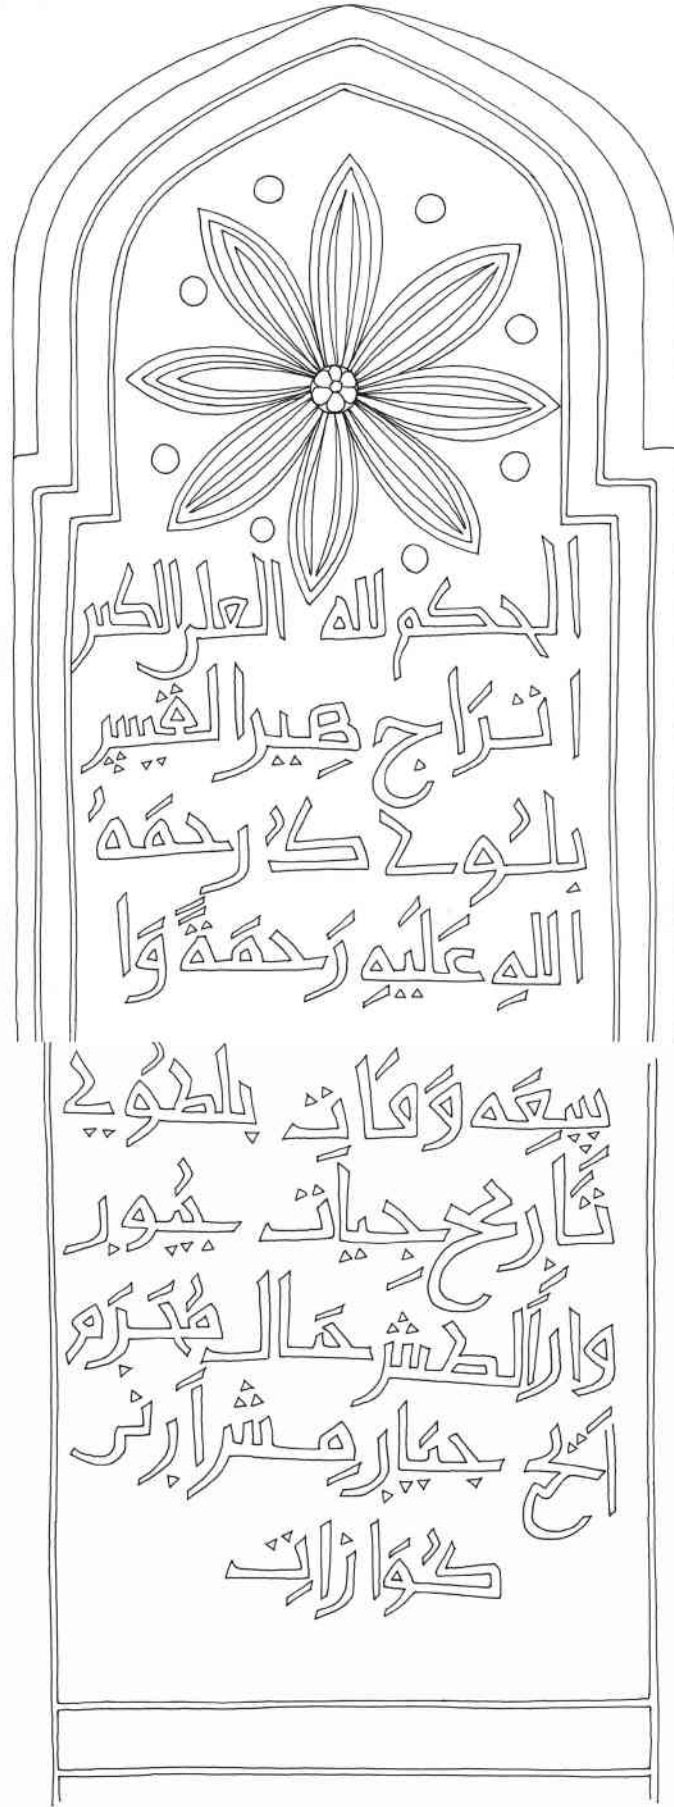 الحكم لله العلى الكبير
اتَرَاج هِيرا القَسير
بلُوى كُ رحمَهُ
اللهِ عَلَيهِ رَحمَةً وَا
سِعَه وَفَاتِ بلطُوى
تَارِيح جِيَاتِ جيُور
وارًا لطشر حَال مُحَرَم
اَيح جيَار مِشر اَرنى
كُوَازاتِ